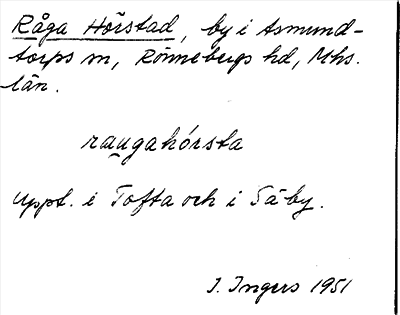 Råga Hörstad, by i Asmund-
torps sn, Rönnebergs hd, Mhs.
län.
raugahórsta
Uppt. i Tofta och i Säby.
I. Ingers 1951